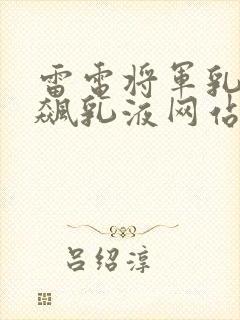 雷電将軍乳
飆乳液网佔
吕绍淳